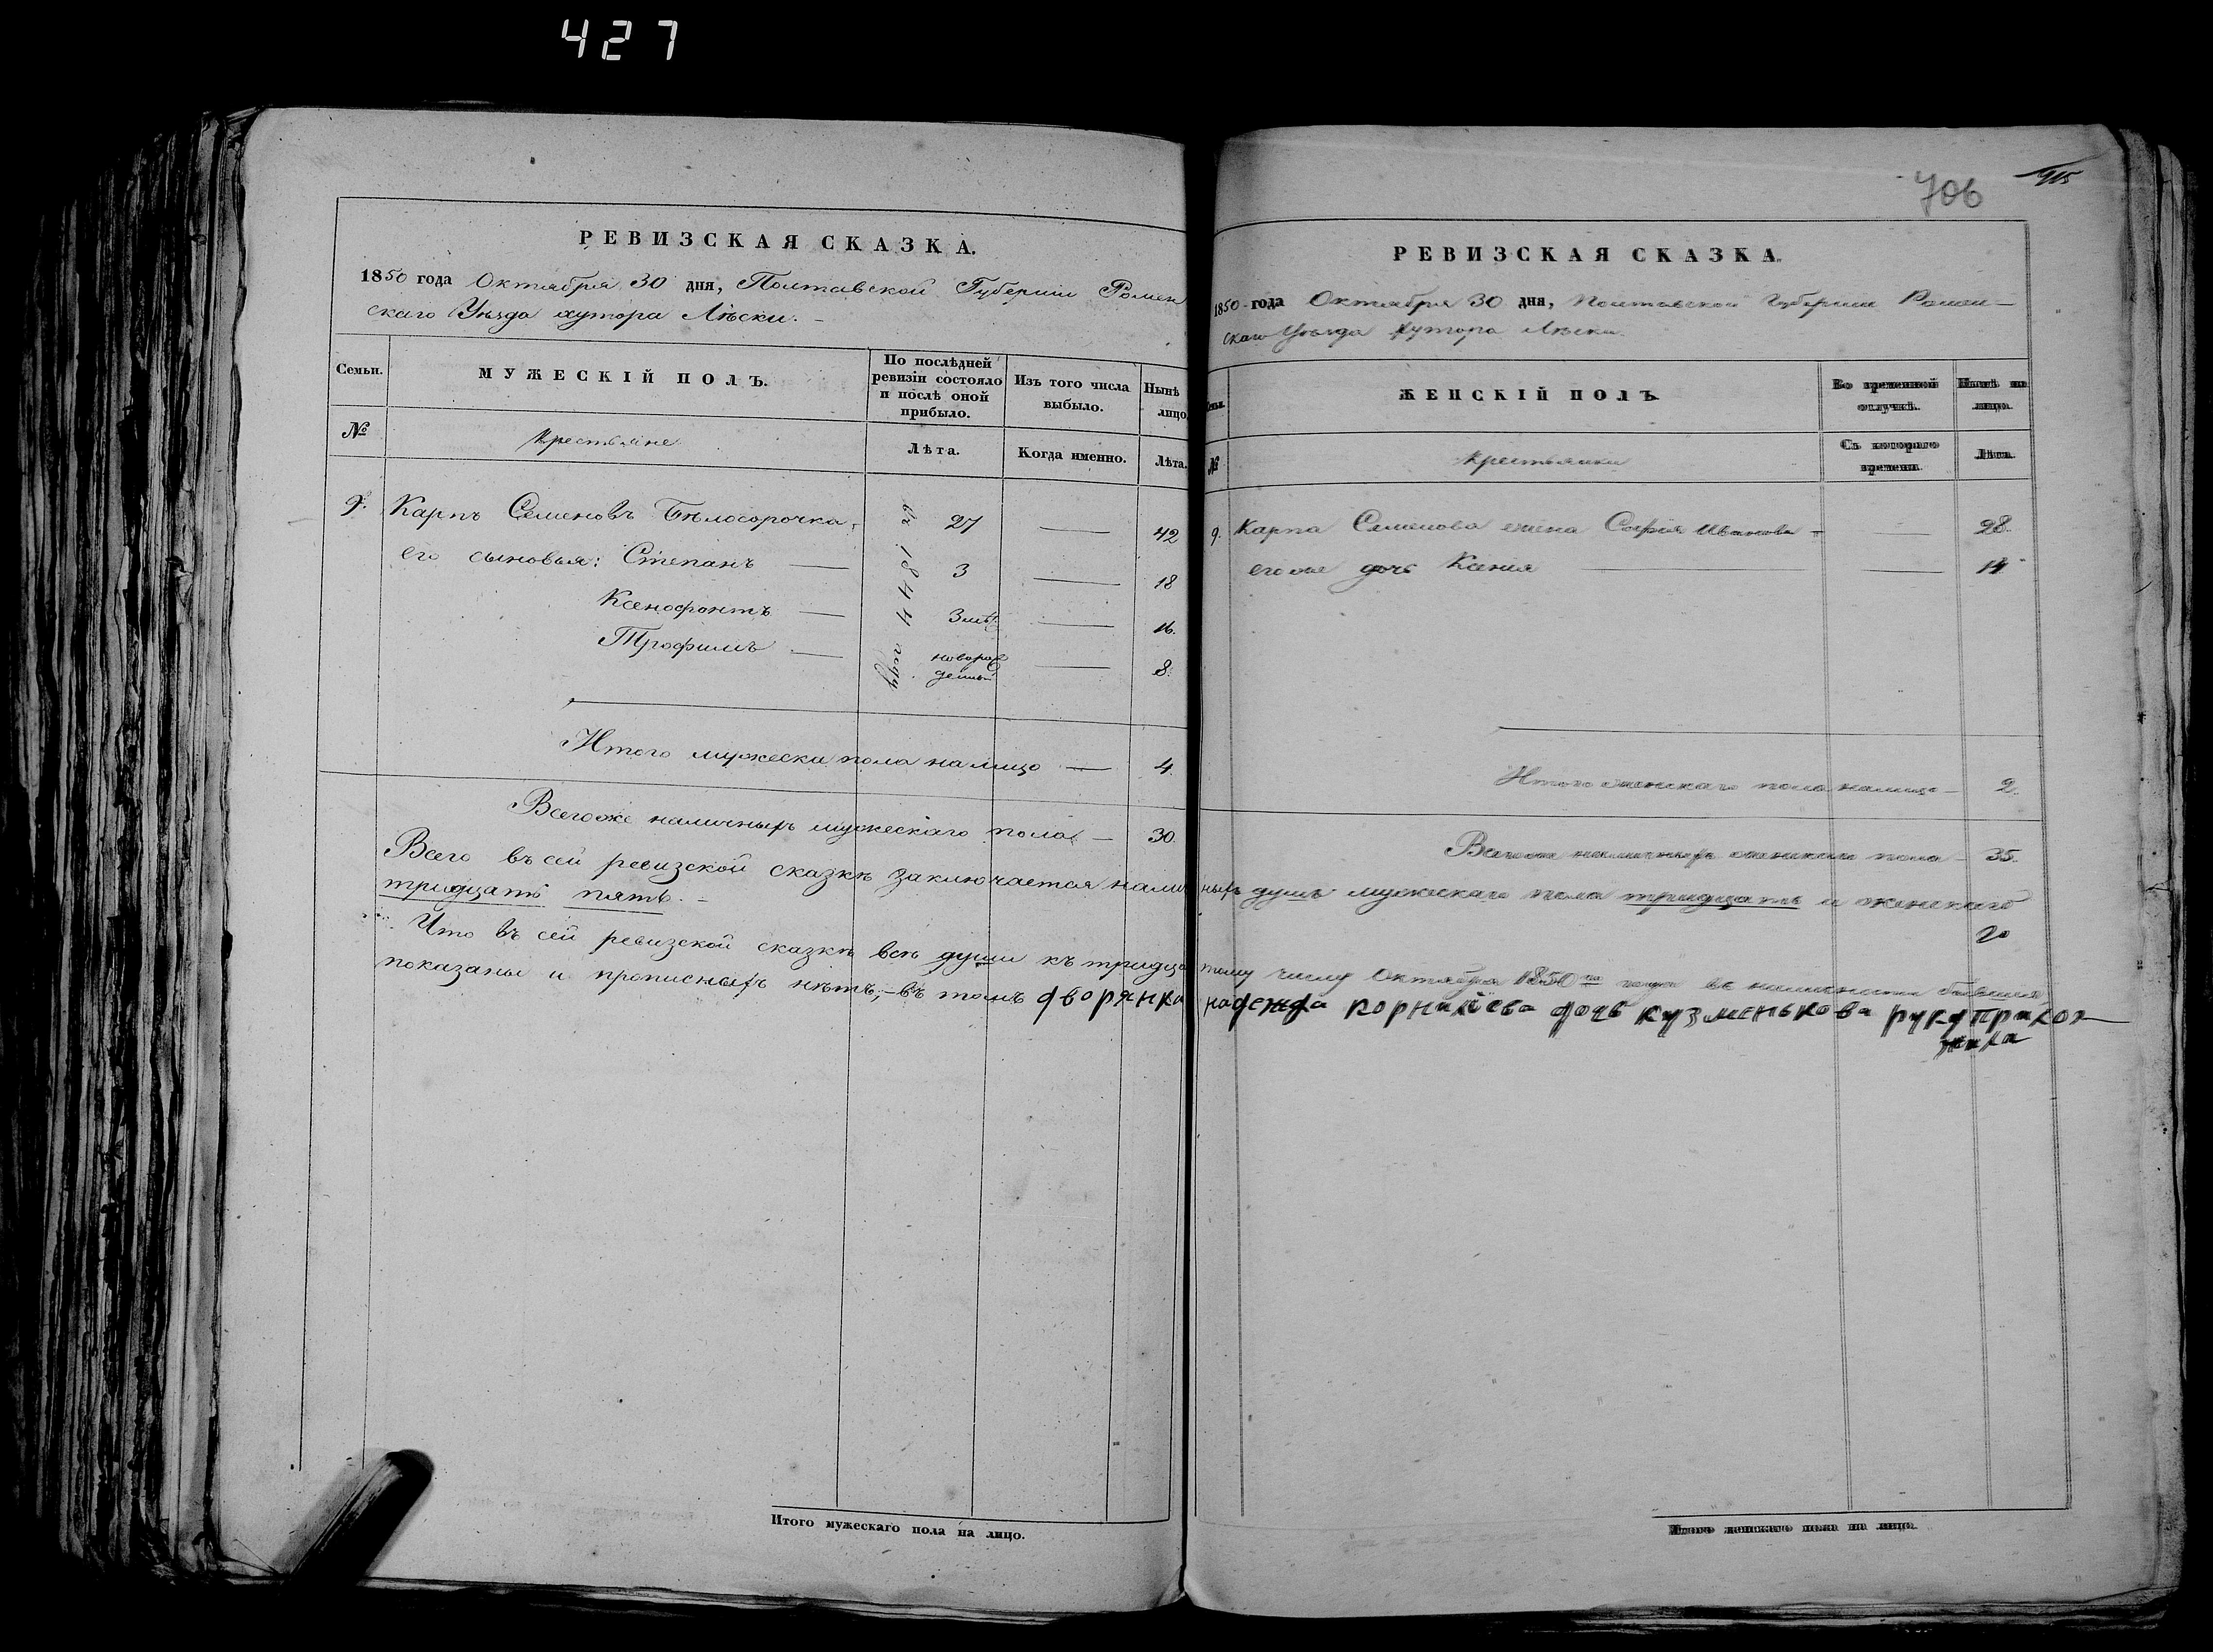 427
РЕВИЗСКАЯ СКАЗКА.
1850 года Октября 30 дня, Полтавской Губернии Ромен
скаго Уезда хутора Лѣски.
Семьи.
МУЖЕСКІЙ ПОЛЪ.
По послѣдней ревизіи состояло и послѣ оной прибыло.
Изъ того числа выбыло.
Нынѣ лицо
№
Крестьяне
Лѣта.
Когда именно.
Лѣта.
9. Карпъ Семеновъ Бѣлосорочка, 27 — 42
его сыновья: Степанъ — 3 — 18
Ксенофонтъ — — 16.
Трофимъ — новорож денный — 8.
Итого мужеска пола на лицо — 4
Всего же наличныхъ мужескаго пола — 30
Всего въ сей ревизской сказкѣ заключается налич
тридцать пять. —
Что въ сей ревизской сказкѣ всѣ души къ тридца
показаны и прописныхъ нѣтъ, — въ томъ дворянка
Итого мужескаго пола на лицо.
706
915
РЕВИЗСКАЯ СКАЗКА.
1850 года Октября 30 дня, Полтавской Губернии Ромен—
скаго Уезда хутора Лѣски.
Семьи.
ЖЕНСКІЙ ПОЛЪ.
Во временной отлучкѣ.
Нынѣ на лицо.
№
Крестьянки
Съ котораго времени.
Лѣта.
9. Карпа Семенова жена Софія Иванова — — 28.
его дочь Ксенія — — 14
Итого женскаго пола налицо — 2.
Всего же наличныхъ женскаго пола — 35.
ныхъ душъ мужескаго пола тридцать и женскаго
тому числу Октября 1850 года въ наличности бывшія
надежда корнилиева дочь кузменькова руку прилож
жила
Итого женскаго пола на лицо.